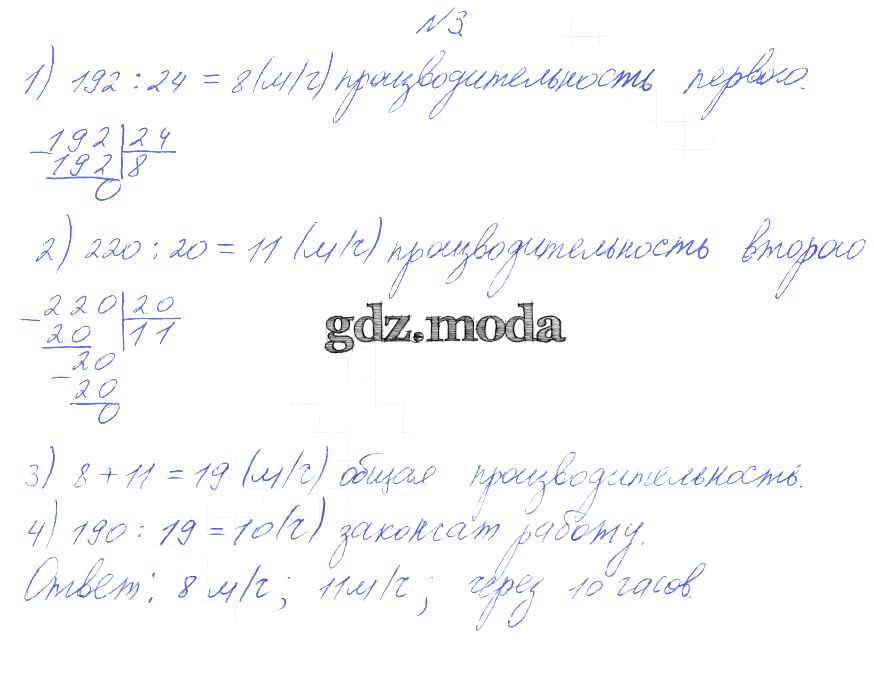 №3
1) 192 : 24 = 8 (м/ч) производительность первого.
192 | 24
- 192 | 8
0
2) 220 : 20 = 11 (м/ч) производительность второго
- 220 | 20
20 | 11
gdz.moda
- 20
20
0
3) 8 + 11 = 19 (м/ч) общая производительность.
4) 190 : 19 = 10 (ч) закончат работу.
Ответ: 8 м/ч; 11 м/ч; через 10 часов.